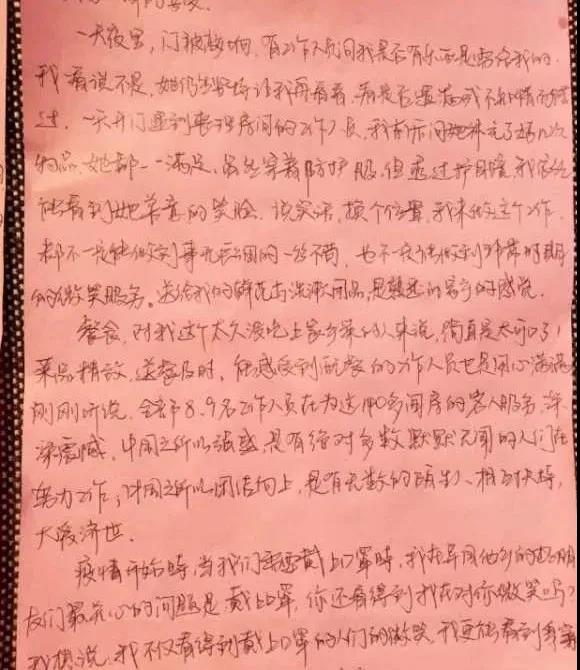 一天夜里，门被敲响，有工作人员问我是否有东西是需给我的.
我看说不是，她仍坚持让我再看看，
过．一天开门遇到整理房间的工作人员，我前后问她补充了好几次
物品，她都一一满足，虽然穿着防护服，但透过护目镜，我依然
能看到她善意的笑脸．说实话，换个位置，我来做这个工作，
都不一定能做到事无巨细的一丝不苟，也不一定能做到非常时期
的微笑服务。送给我的鲜花与洗漱用品，是熟悉的家乡的感觉．
餐食，对我这个太久没吃上家乡菜的人来说，简直是太可口了！
菜品精致，送餐及时，能感受到配餐的工作人员也是用心满满
刚刚听说，全部8.9名工作人员在为这140多间房的客人服务，深
深震撼．中国之所以强盛，是有绝对多数默默无闻的人们在
努力工作；中国之所以团结向上，是有无数的陌生人，相互扶持，
大爱济世．
疫情开始时，当我们要戴上口罩时，我在异国他乡的
友们最关心的问题是戴上口罩，你还看得到我在对你微笑吗？
我想说，我不仅看得到戴上口罩的人们的微笑，我更能看到